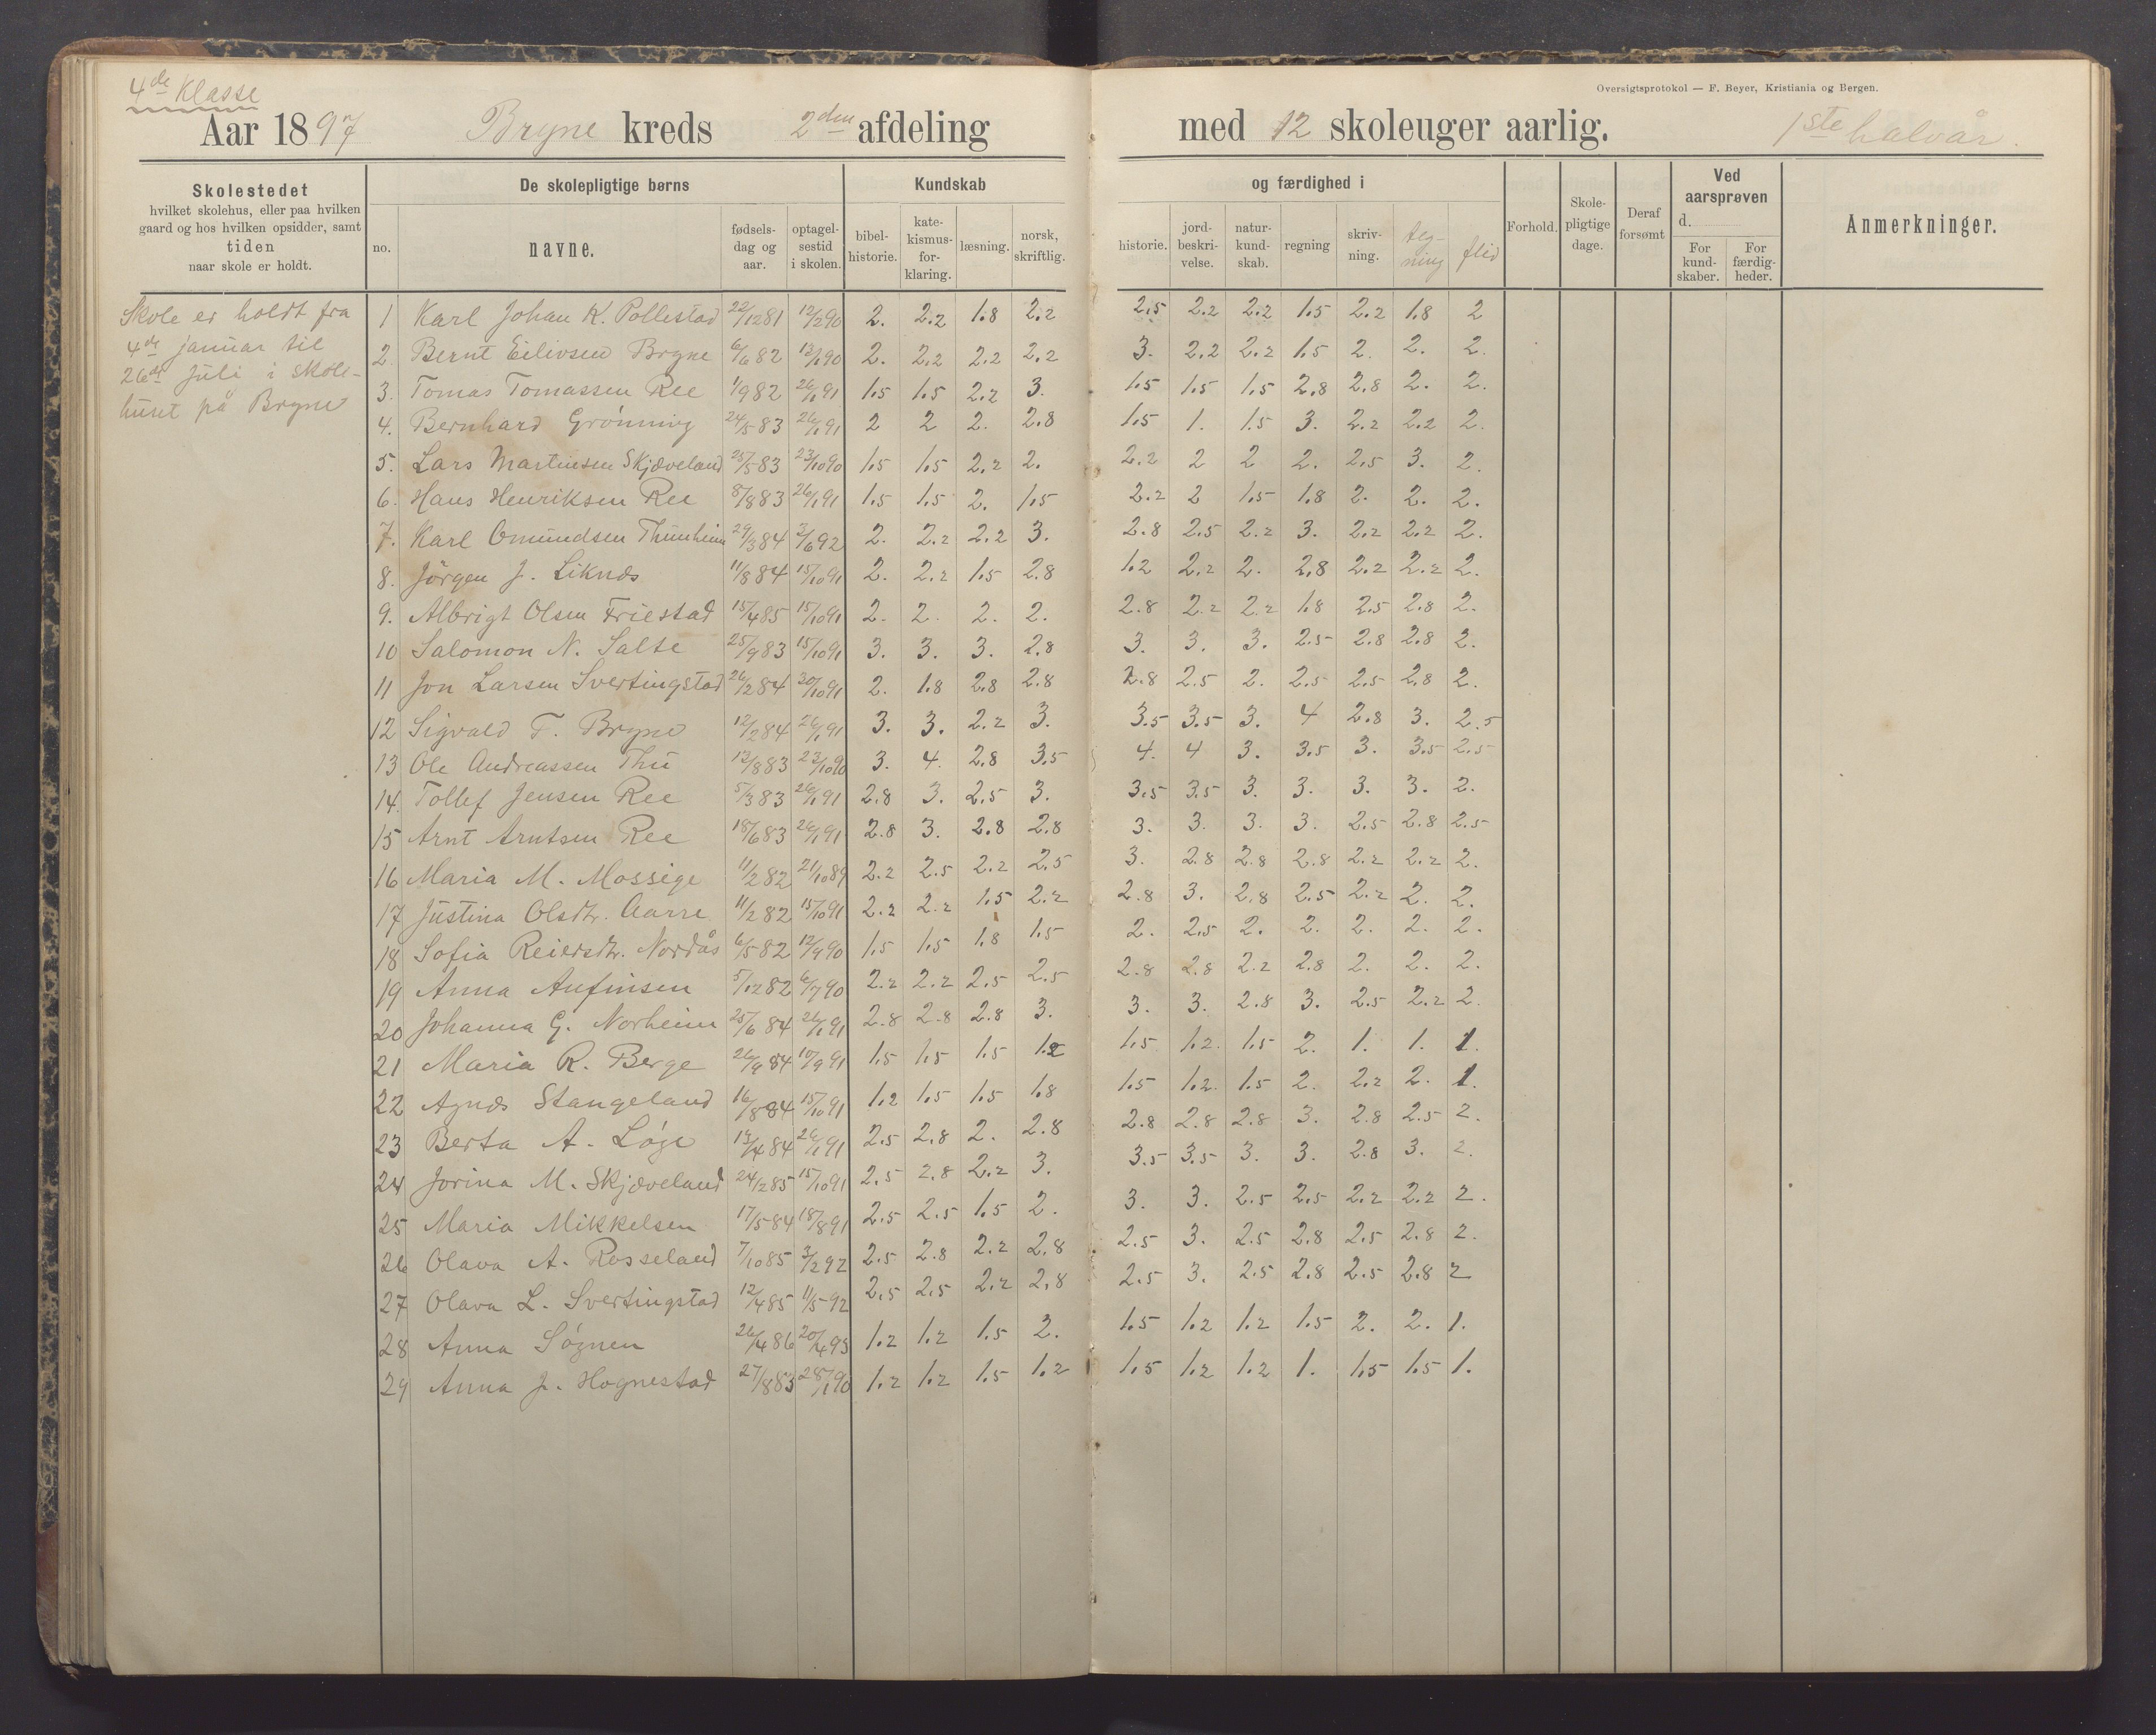 4de Klasse
Oversigtsprotokol — F. Beyer, Kristiania og Bergen.
Aar 1897 Bryne kreds 2den afdeling med 12 skoleuger aarlig. 1ste halvår.
Skolestedet
hvilket skolehus, eller paa hvilken
gaard og hos hvilken opsidder, samt
tiden
naar skole er holdt.
De skolepligtige børns
no.
navne.
fødsels-
dag og
aar.
optagel-
sestid
i skolen.
Kundskab
bibel-
historie.
kate-
kismus-
for-
klaring.
læsning.
norsk,
skriftlig.
og færdighed i
historie.
jord-
beskri-
velse.
natur-
kund-
skab.
regning
skriv-
ning.
teg-
ning
flid
Forhold.
Skole-
pligtige
dage.
Deraf
forsømt
Ved
aarsprøven
d.
For
kund-
skaber.
For
færdig-
heder.
Anmerkninger.
Skole er holdt fra
4de januar til
26de juli i skole-
huset på Bryne
1 Karl Johan K. Pollestad 22/12 81 12/2 90 2. 2.2 1.8 2.2 2.5 2.2 2.2 1.5 2.2 1.8 2
2. Bernt Eilivsen Bryne 6/6 82 12/1 90 2. 2.2 2.2 2.2 3. 2.2 2.2 1.5 2. 2. 2.
3. Tomas Tomassen Ree 1/9 82 26/1 91 1.5 1.5 2.2 3. 1.5 1.5 1.5 2.8 2.8 2. 2.
4. Bernhard Grönning 24/5 83 26/1 91 2 2 2. 2.8 1.5 1. 1.5 3. 2.2 2.2 2.
5. Lars Martinsen Skjæveland 25/5 83 23/10 90 1.5 1.5 2.2 2. 2.2 2 2 2. 2.5 3. 2.
6. Hans Henriksen Ree 8/8 83 26/1 91 1.5 1.5 2. 1.5 2.2 2 1.5 1.8 2. 2. 2.
7. Karl Omundsen Thunheim 29/3 84 3/6 92 2. 2.2 2.2 3. 2.8 2.5 2.2 3. 2.2 2.2 2.
8. Jörgen J. Liknæs 11/8 84 15/10 91 2. 2.2 1.5 2.8 1.2 2.2 2. 2.8 2.2 2.2 2.
9. Albrigt Olsen Friestad 15/4 85 15/10 91 2. 2. 2. 2. 2.8 2.2 2.2 1.8 2.5 2.8 2.
10 Salomon N. Salte 25/9 83 15/10 91 3. 3. 3. 2.8 3. 3. 3. 2.5 2.8 2.8 2.
11 Jon Larsen Svertingstad 26/2 84 30/10 91 2. 1.8 2.8 2.8 2.8 2.5 2. 2.5 2.5 2.8 2.
12 Sigvald T. Bryne 12/2 84 26/1 91 3. 3. 2.2 3. 3.5 3.5 3. 4 2.8 3. 2.5
13 Ole Andreassen Thu 13/8 83 23/10 90 3. 4. 2.8 3.5 4. 4 3. 3.5 3. 3.5 2.5
14. Tollef Jensen Ree 5/3 83 26/1 91 2.8 3. 2.5 3. 3.5 3.5 3. 3. 3. 3. 2.
15 Arnt Arntsen Ree 18/6 83 26/1 91 2.8 3. 2.8 2.8 3. 3. 3. 3. 2.5 2.8 2.5
16 Maria M. Mossige 11/2 82 21/10 89 2.2 2.5 2.2 2.5 3. 2.8 2.8 2.8 2.2 2.2 2.
17 Justina Olsdtr. Aarre 11/2 82 15/10 91 2.2 2.2 1.5 2.2 2.8 3. 2.8 2.5 2.2 2. 2.
18 Sofia Reiersdtr. Nordås 6/5 82 12/9 90 1.5 1.5 1.8 1.5 2. 2.5 2. 2. 2. 2. 2.
19 Anna Anfinsen 5/12 82 6/7 90 2.2 2.2 2.5 2.5 2.8 2.8 2.2 2.8 2. 2. 2.
20 Johanna G. Norheim 25/6 84 26/1 91 2.8 2.8 2.8 3. 3. 3. 2.8 3. 2.5 2.2 2.
21 Maria R. Berge 26/9 84 10/9 91 1.5 1.5 1.5 1.2 1.5 1.2. 1.5 2. 1. 1. 1.
22 Agnæs Stangeland 16/8 84 15/10 91 1.2 1.5 1.5 1.8 1.5 1.2. 1.5 2. 2.2 2. 1.
23 Berta A. Löge 19/4 84 26/1 91 2.5 2.8 2. 2.8 2.8 2.8 2.8 3. 2.8 2.5 2.
24 Jorina M. Skjæveland 24/2 85 15/10 91 2.5 2.8 2.2 3. 3.5 3.5 3. 3. 2.8 3. 2.
25 Maria Mikkelsen 17/5 84 18/8 91 2.5 2.5 1.5 2. 3. 3. 2.5 2.5 2.2 2.2 2.
26 Olava A. Rosseland 7/10 85 3/2 92 2.5 2.8 2.2 2.8 2.5 3. 2.5 2.8 2.5 2.8 2.
27 Olava L. Svertingstad 12/4 85 11/5 92 2.5 2.5 2.2 2.8 2.5 3. 2.5 2.8 2.5 2.8 2
28 Anna Sögnen 26/4 86 20/4 93 1.2 1.2 1.5 2. 1.5 1.2 1.2 1.5 2. 2. 1.
29 Anna J. Hognestad 27/8 83 28/1 90 1.2 1.2 1.5 1.2 1.5 1.2 1.2 1. 1.5 1.5 1.